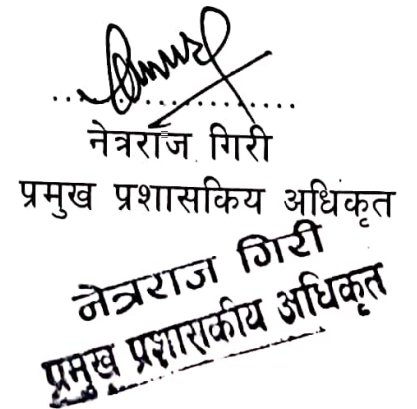 नेत्रराज गिरी
प्रमुख प्रशासकिय अधिकृत
नेत्रराज गिरी
प्रमुख प्रशासकीय अधिकृत